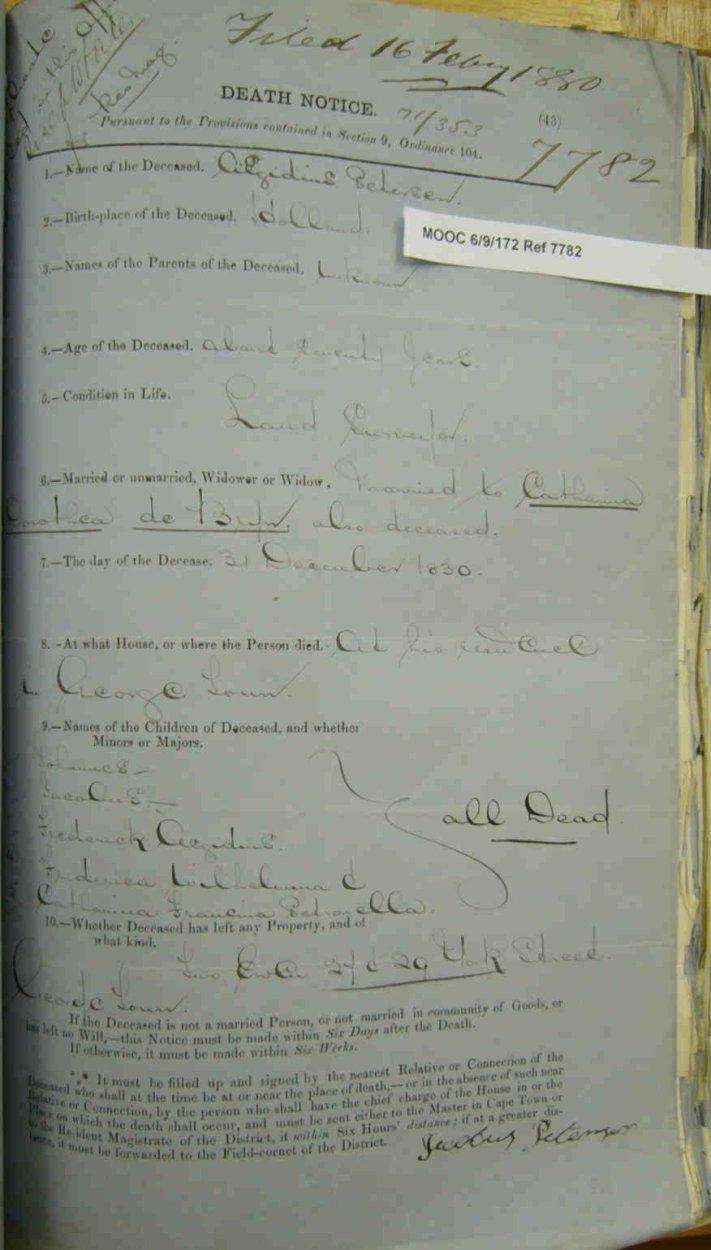 Filed 16 Feby 1880
DEATH NOTICE.
71/353
(43)
Pursuant to the Provisions contained in Section 9, Ordinance 104.
7782
1.—Name of the Deceased. Aegidius Petersen.
2.—Birth-place of the Deceased. Holland
MOOC 6/9/172 Ref 7782
3.—Names of the Parents of the Deceased. Unknown
4.—Age of the Deceased. about Years.
5.—Condition in Life. Land Surveyor.
6.—Married or unmarried, Widower or Widow. Married to Catharina
Dorothea de Bruyn, also deceased.
7.—The day of the Decease. 31 December 1830.
8.—At what House, or where the Person died. At his residence
George Town.
9.—Names of the Children of Deceased, and whether
Minors or Majors.
Johannes —
Jacobus —
Frederick Aegidius.
all Dead
Frederica Wilhelmina &
Catharina Francina Petronella.
10.—Whether Deceased has left any Property, and of
what kind.
Two Erven 27 & 29 York Street.
George Town.
If the Deceased is not a married Person, or not married in community of Goods, or
has left no Will,—this Notice must be made within Six Days after the Death.
If otherwise, it must be made within Six Weeks.
*** It must be filled up and signed by the nearest Relative or Connection of the
Deceased who shall at the time be at or near the place of death,—or in the absence of such near
Relative or Connection, by the person who shall have the chief charge of the House in or the
Place on which the death shall occur, and must be sent either to the Master in Cape Town or
to the Resident Magistrate of the District, if within Six Hours' distance; if at a greater dis-
tance, it must be forwarded to the Field-cornet of the District.
Jacobus Petersen